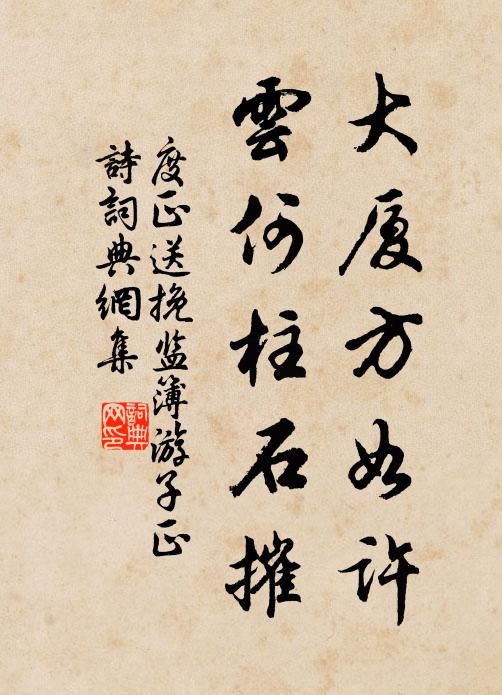 大厦方如许
雲何柱石摧
度正送挽监簿游子正
詩詞典網集
詞典网印